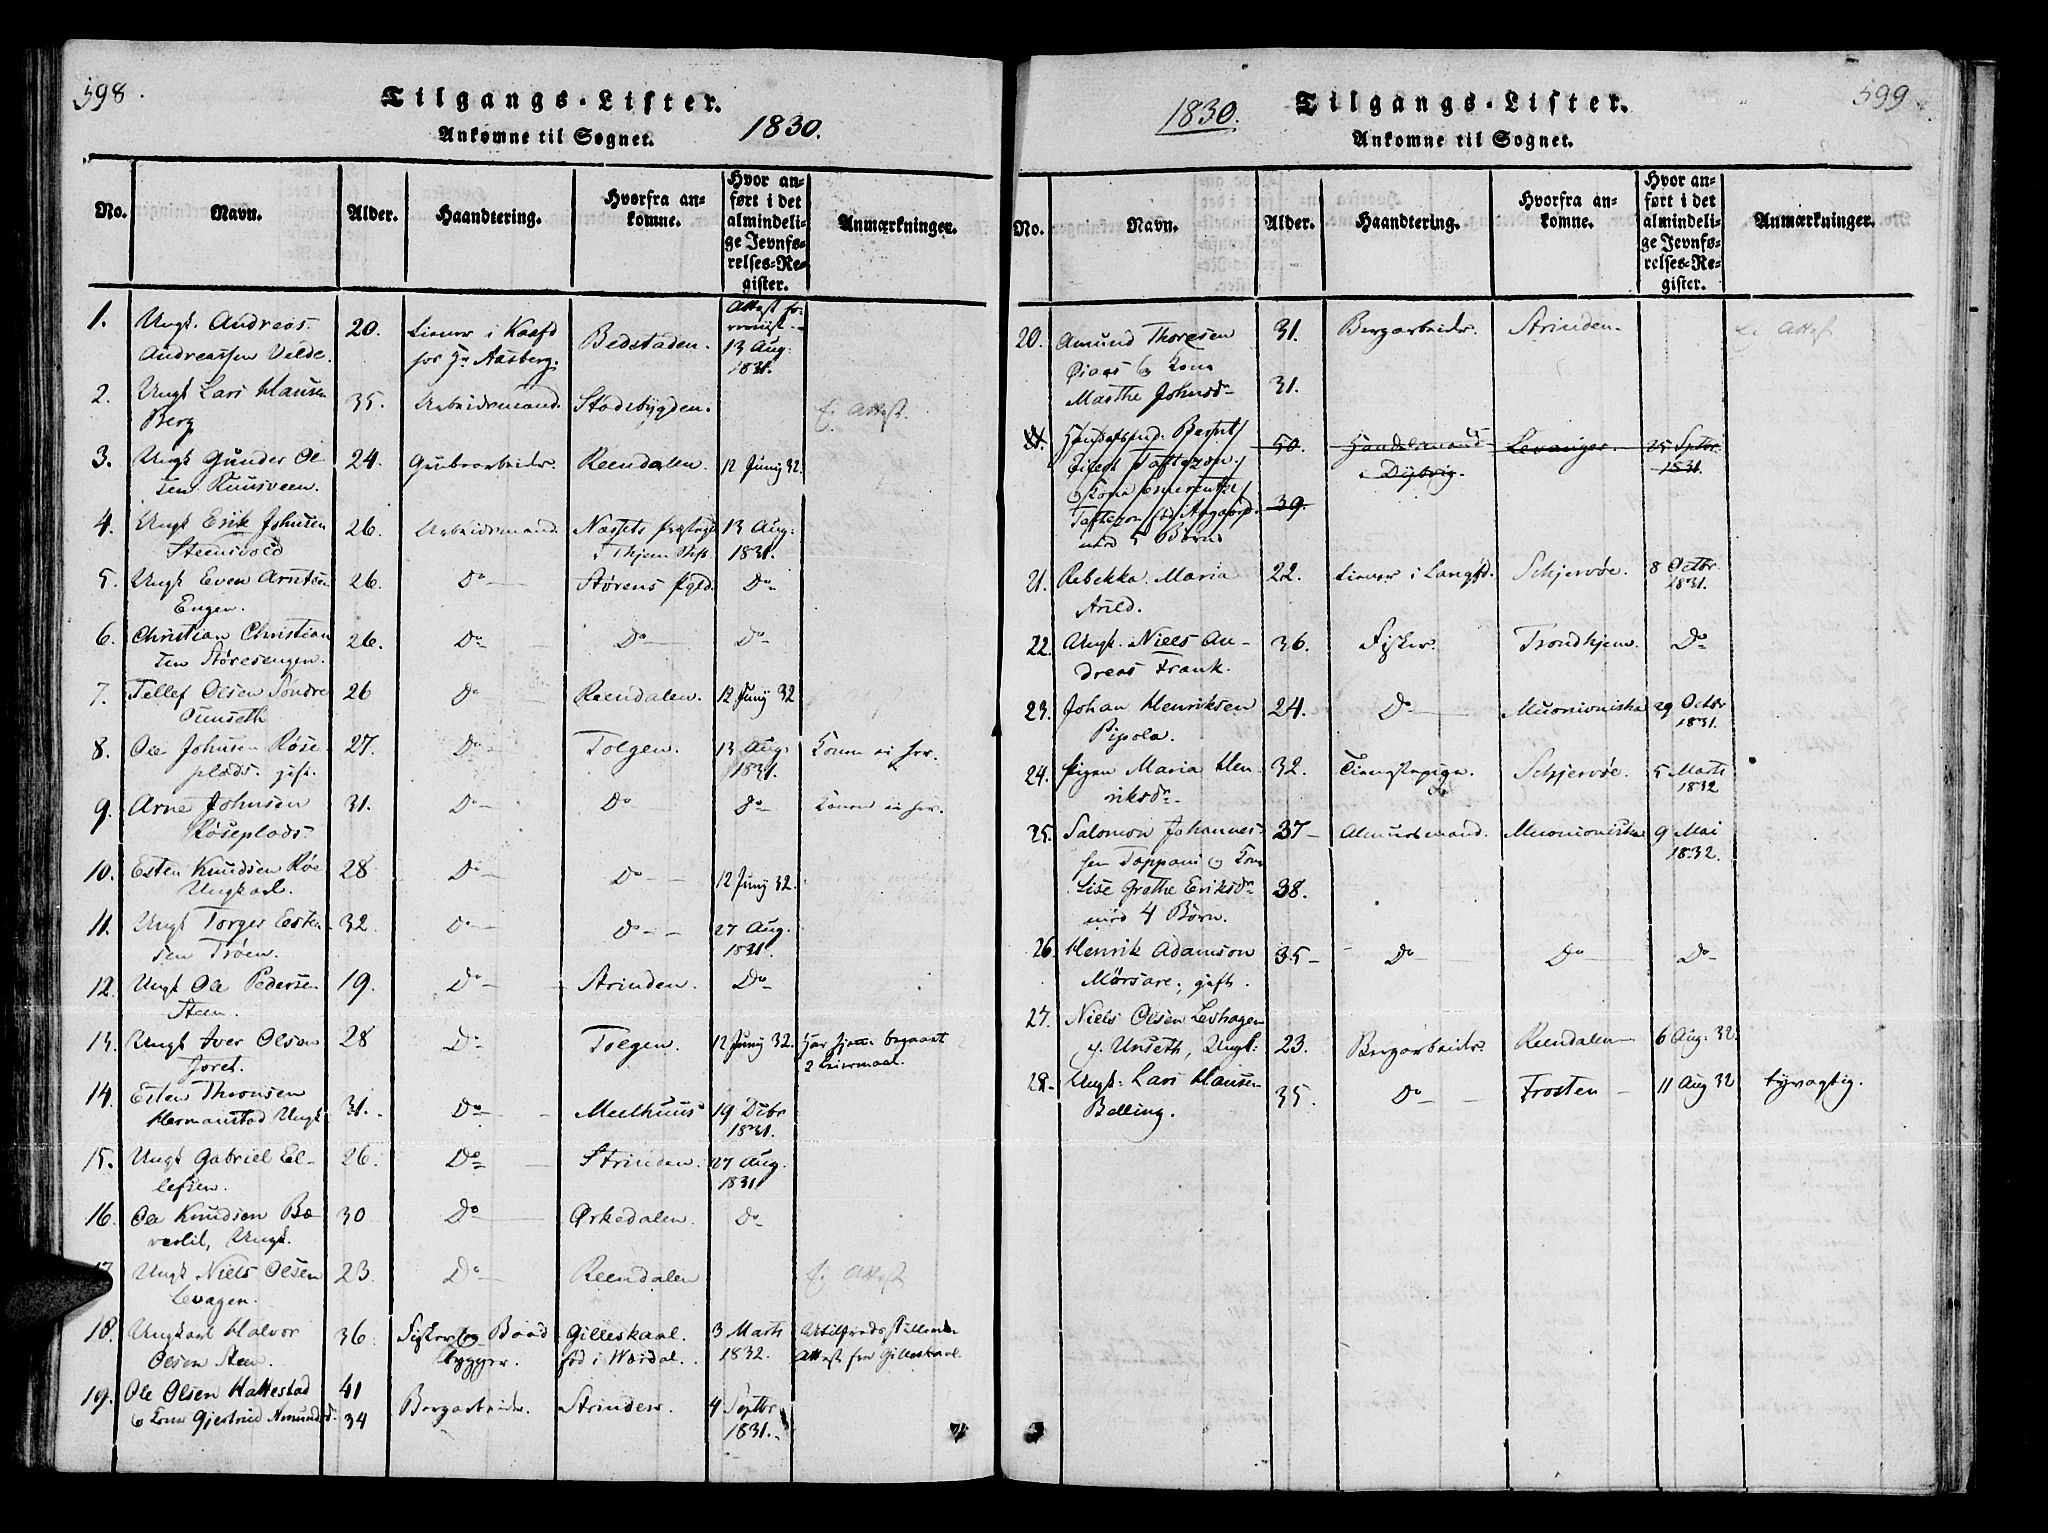 598.
Tilgangs-Lister.
Ankomne til Sognet.
1830.
No. Navn. Alder. Haandtering. Hvorfra ankomne. Hvor anført i det almindelige Jevnførelses-Register. Anmærkninger.
1. Ungk. Andreas 20. Tiener i Kaafd Bedstaden. Attest
Andreassen Velde. for Hr Aasberg. 13 Aug. 1831.
2. Ungk Lars Hansen 35. Arbeidsmand. Stodsbygden. Ei Attest.
Berg
3. Ungk Gunder Ol- 24. Grubearbeider. Reendalen. 12 Juny 32.
sen Kuusveen.
4. Ungk Erik Johnsen 26. Arbeidsmand. Næssets 13 Aug:
Steensvold 1831.
5. Ungk Even Arntsen 26. Do Størens Pgld. Do
Engen.
6. Christian Christian 26. Do Do Do
sen Støresengen.
7. Tellef Olsen Søndre 26 Do Reendalen. 12 Juny 32
Ounseth
8. Ole Johnsen Røse- 27. Do Tolgen. 13 Aug: Komm ei her.
plads. gift. 1831.
9. Arne Johnsen 31. Do Do Do Komm ei her.
Røseplads
10. Esten Knudsen Røe 28 Do Do 12 Juny 32.
Ungkarl.
11. Ungk Torger Esten- 32. Do Do 27 Aug.
sen Trøen. 1831.
12. Ungk Ole Pedersen 19. Do Strinden. Do
Steen.
13. Ungk Iver Olsen 28 Do Tolgen. 12 Juny 32. Har hjem begaaet
Joret. 2 Leiermaal.
14. Esten Thronsen 31. Do Meelhuus 19 Debr
Hermanstad Ungk 1831.
15. Ungk Gabriel El- 26. Do Strinden. 27 Aug.
lefsen. 1831
16. Ole Knudsen Bæ- 30 Do Ørkedalen. Do
verlil, Ungk.
17 Ungk Niels Olsen 23. Do Reendalen Ei Attest
Levagen.
18. Ungkarl Halvor 36. Fisker og Baad Gilleskaal. 3 Marts
Olsen Steen. bygger. fød i Værdal. 1832. Attest fra Gilleskaal
19. Ole Olsen Hattestad 41 Bergarbeider. Strinden. 4 Septbr
& Kone Gjertrud Amundsd. 34 1831.
599.
1830.
Tilgangs-Lister.
Ankomne til Sognet.
No. Navn. Alder. Haandtering. Hvorfra ankomne. Hvor anført i det almindelige Jevnførelses-Register. Anmærkninger.
20. Amund Thoresen 31. Bergarbeider. Strinden. Ei Attest
Øiaas & Kone
Marthe Johnsdr 31.
50. Handelsmand Levanger. 25 Septbr
i Dybvig. 1831.
39.
med 5 Børn
21. Rebekka Maria 22. Tiener i Langfd. Schjervøe. 8 Octbr
Arild. 1831.
22. Ungk. Niels An- 36. Fisker. Trondhjem. Do
dreas Frank.
23. Johan Henriksen 24. Do Muonioniska 29 Octbr
Pipola. 1831.
24. Pigen Maria Hen- 32. Tienestepige. Schjervøe. 5 Marts
riksdr. 1832
25. Salomon Johannes- 37 Almuesmand. Muonioniska 9 Mai
sen Toppani & Kone 1832.
Lise Grethe Eriksdr 38.
med 4 Børn.
26. Henrik Adamson 35 Do Do Do
Mørsare, gift.
27. Niels Olsen Levhagen
f. Unseth, Ungk: 23. Bergarbeider. Reendalen 6 Aug: 32.
28. Ungk: Lars Hansen 35. Do Frosten 11 Aug 32 tyvagtig.
Belling.